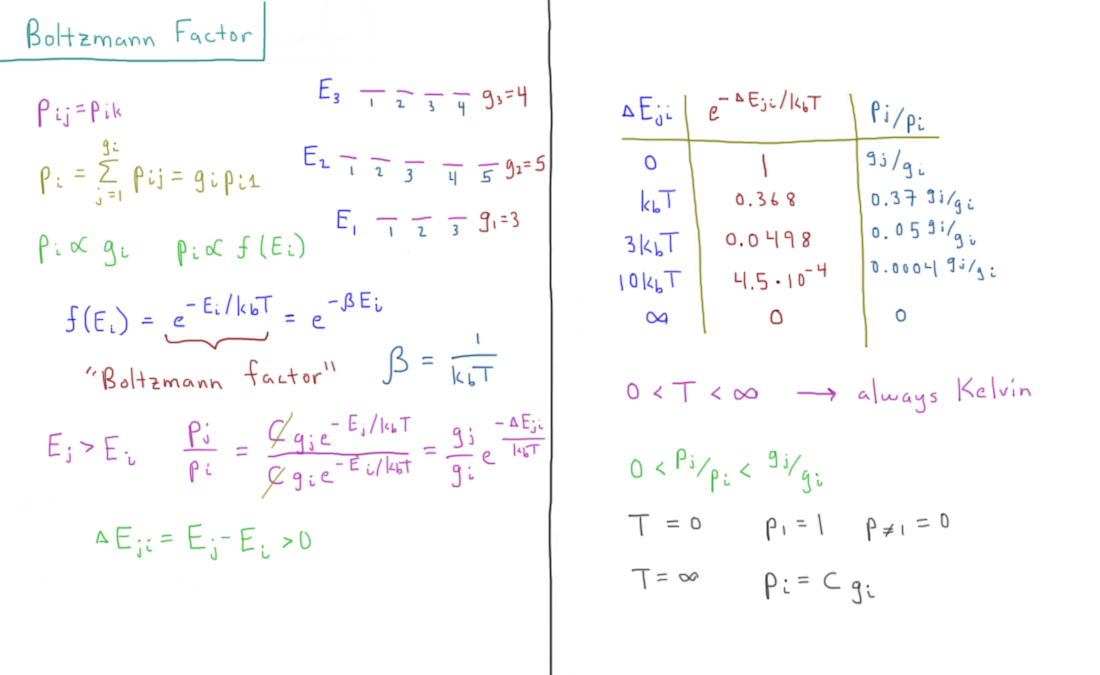 Boltzmann Factor
Pij = Pik
Pi = Σ_{j=1}^{gi} Pij = gi Pi1
Pi ∝ gi    Pi ∝ f(Ei)
E3 1 2 3 4 g3=4
E2 1 2 3 4 5 g2=5
E1 1 2 3 g1=3
f(Ei) = e^{-Ei/kbT} = e^{-βEi}
"Boltzmann factor"    β = 1/kbT
Ej > Ei    Pj/Pi = C gj e^{-Ej/kbT} / C gi e^{-Ei/kbT} = gj/gi e^{-ΔEji/kbT}
ΔEji = Ej - Ei > 0
ΔEji    e^{-ΔEji/kbT}    Pj/Pi
0    1    gj/gi
kbT    0.368    0.37 gj/gi
3kbT    0.0498    0.05 gj/gi
10kbT    4.5·10^{-4}    0.0004 gj/gi
∞    0    0
0 < T < ∞ → always Kelvin
0 < Pj/Pi < gj/gi
T = 0    P1 = 1    P≠1 = 0
T = ∞    Pi = C gi